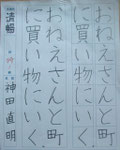 おねえさんと町
に買い物にいく
おねえさんと町
に買い物にいく
清暢
神田直明